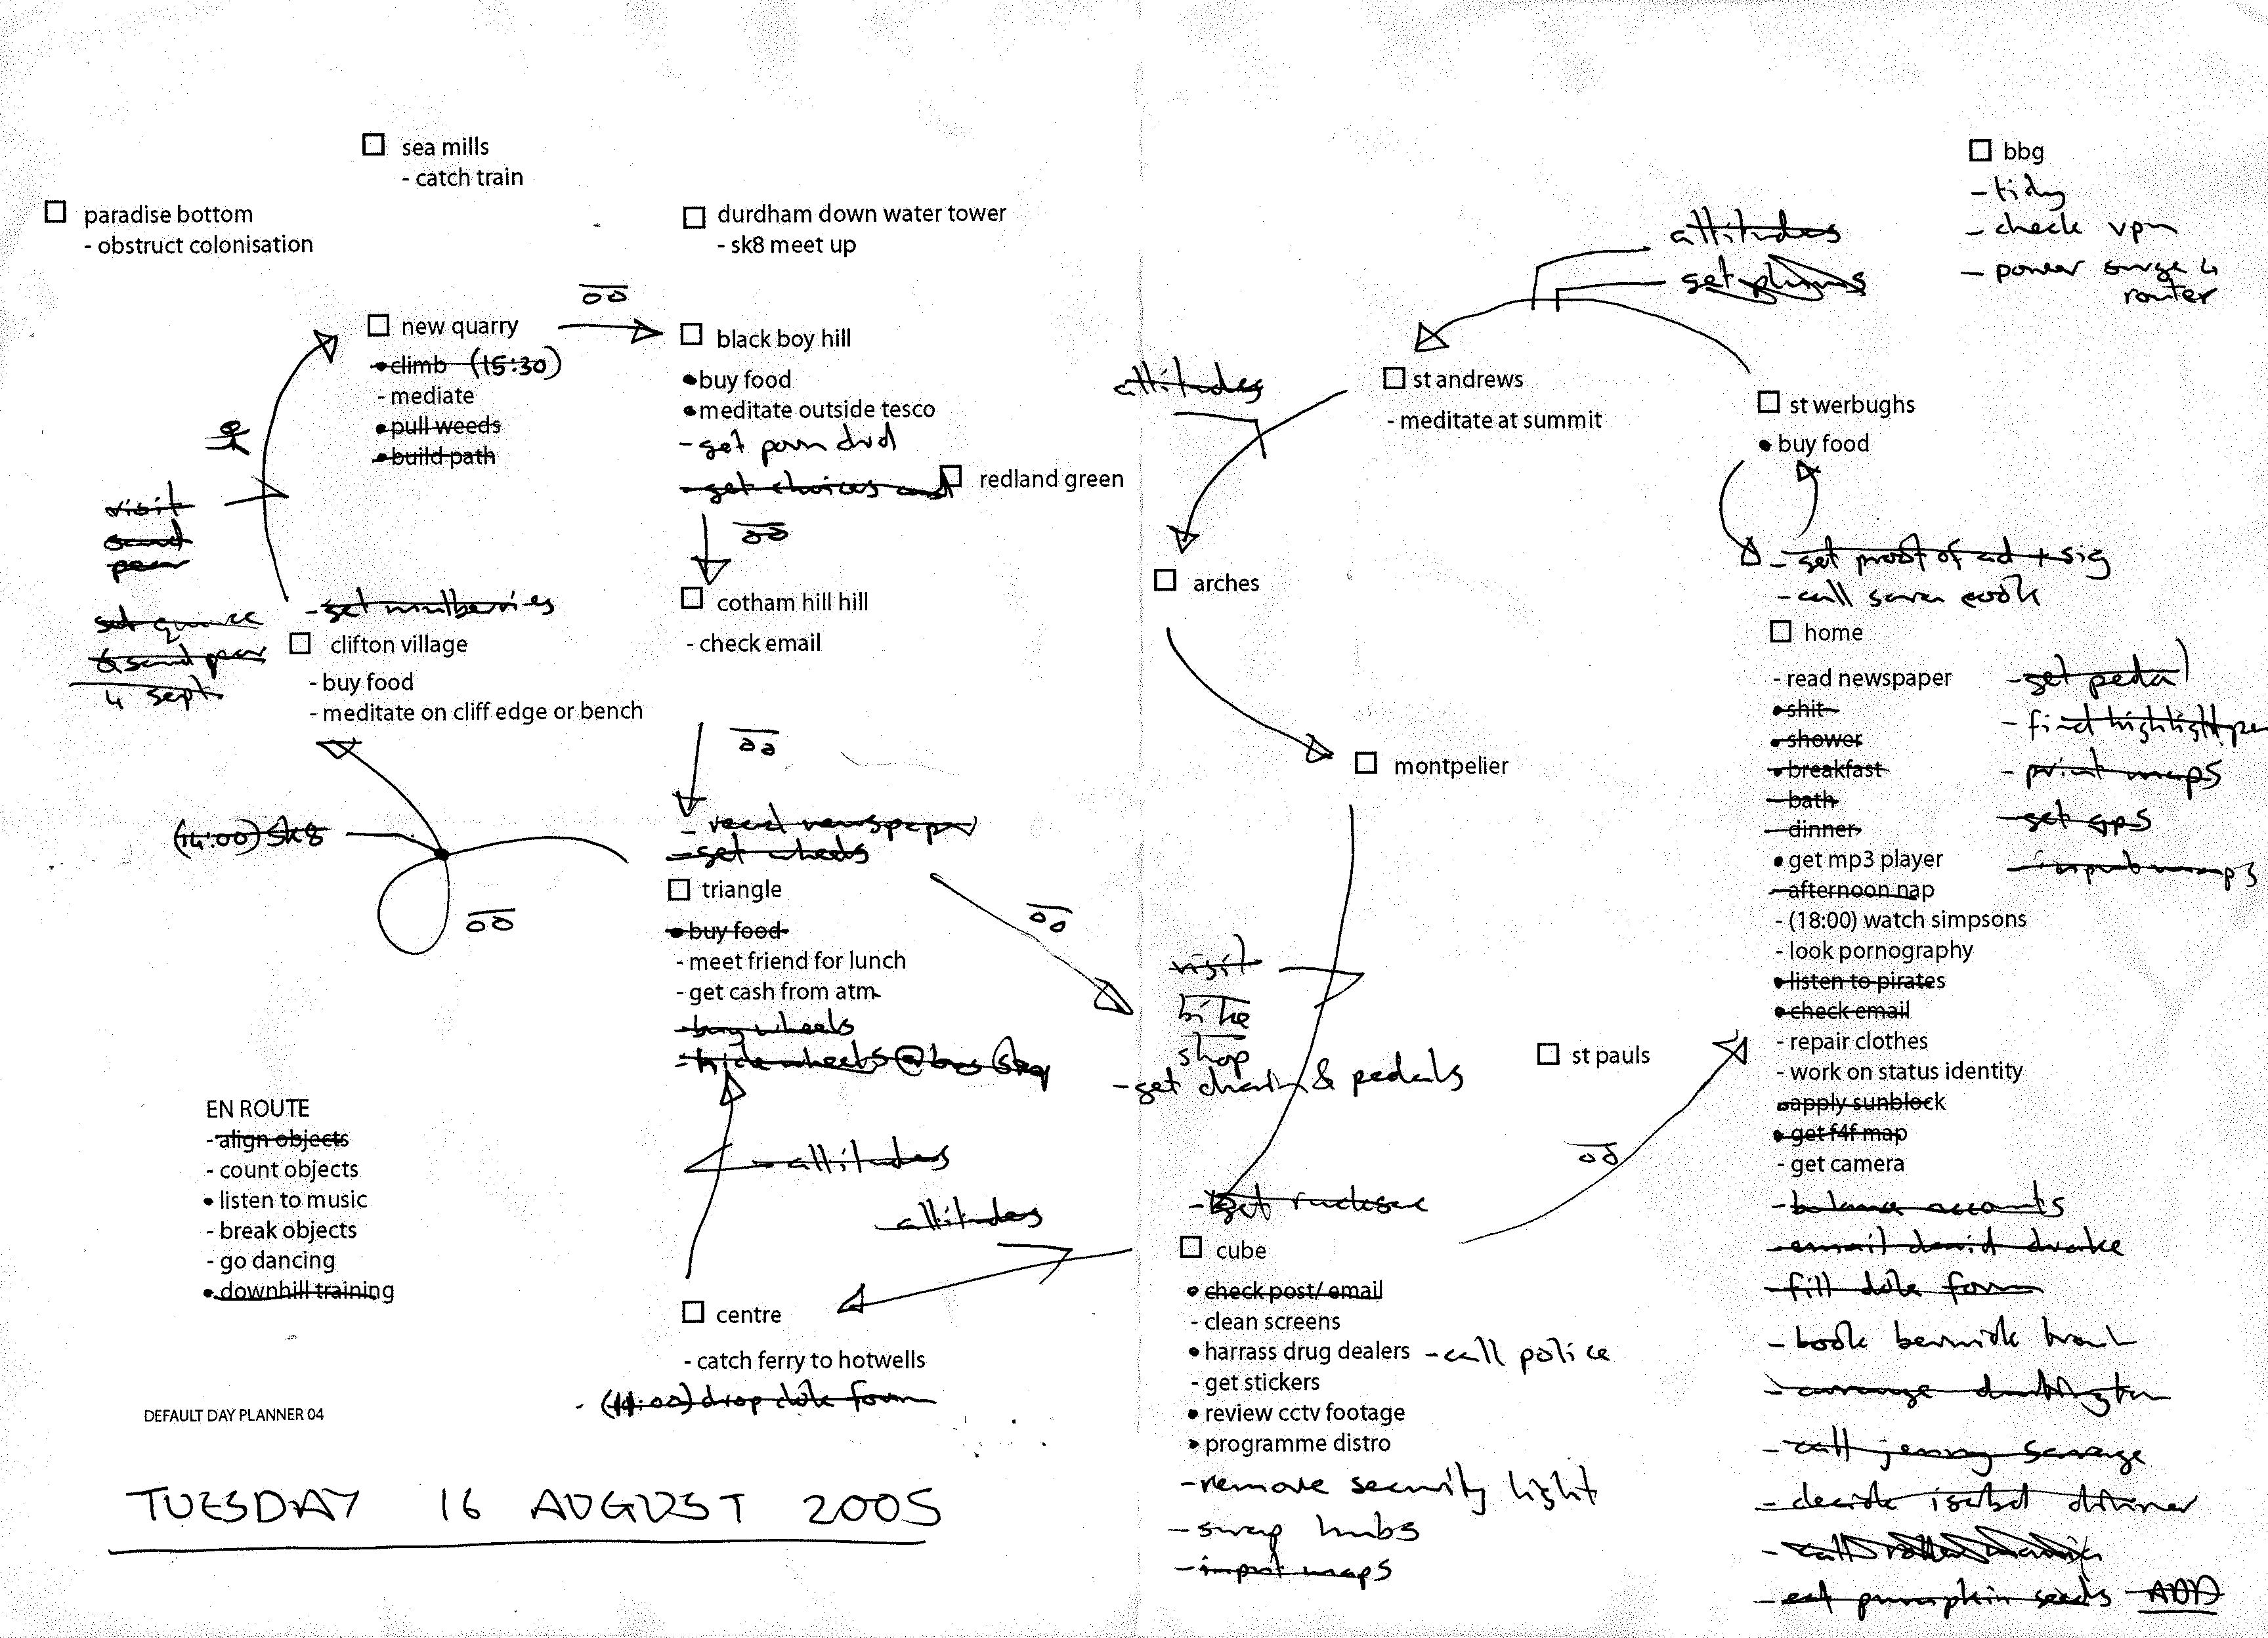 sea mills
- catch train
paradise bottom
- obstruct colonisation
durdham down water tower
- sk8 meet up
bbg
- tidy
- check vpn
- power surge 4
router
attitudes
get plums
new quarry
climb (15:30)
- mediate
pull weeds
build path
black boy hill
buy food
meditate outside tesco
- get porn dvd
- get choices card
redland green
attitudes
st andrews
- meditate at summit
st werbughs
buy food
visit
sand
pear
get quince
& sand pear
4 sept
- get mulberries
clifton village
- buy food
- meditate on cliff edge or bench
cotham hill hill
- check email
arches
montpelier
- get proof of ad + sig
- call sara cook
home
- read newspaper
shit
shower
breakfast
- bath
- dinner
get mp3 player
- afternoon nap
- (18:00) watch simpsons
- look pornography
listen to pirates
check email
- repair clothes
- work on status identity
apply sunblock
get f4f map
- get camera
- balance accounts
- email david drake
- fill dole form
- book berwick
- arrange
- call jenny savage
- decide isabel dinner
- call
- eat pumpkin seeds ADD
- get pedal
- find highlight pen
- print maps
- get gps
- input maps
(14:00) sk8
- read newspaper
- get wheels
triangle
buy food
- meet friend for lunch
- get cash from atm
- buy wheels
- hide wheels @
visit
bike
shop
- get chain & pedals
st pauls
EN ROUTE
- align objects
- count objects
listen to music
- break objects
- go dancing
downhill training
- attitudes
attitudes
centre
- catch ferry to hotwells
- (14:00) drop dole form
- get rucksac
cube
check post/ email
- clean screens
harrass drug dealers - call police
- get stickers
review cctv footage
programme distro
- remove security light
- swap hubs
- input maps
DEFAULT DAY PLANNER 04
TUESDAY 16 AUGUST 2005